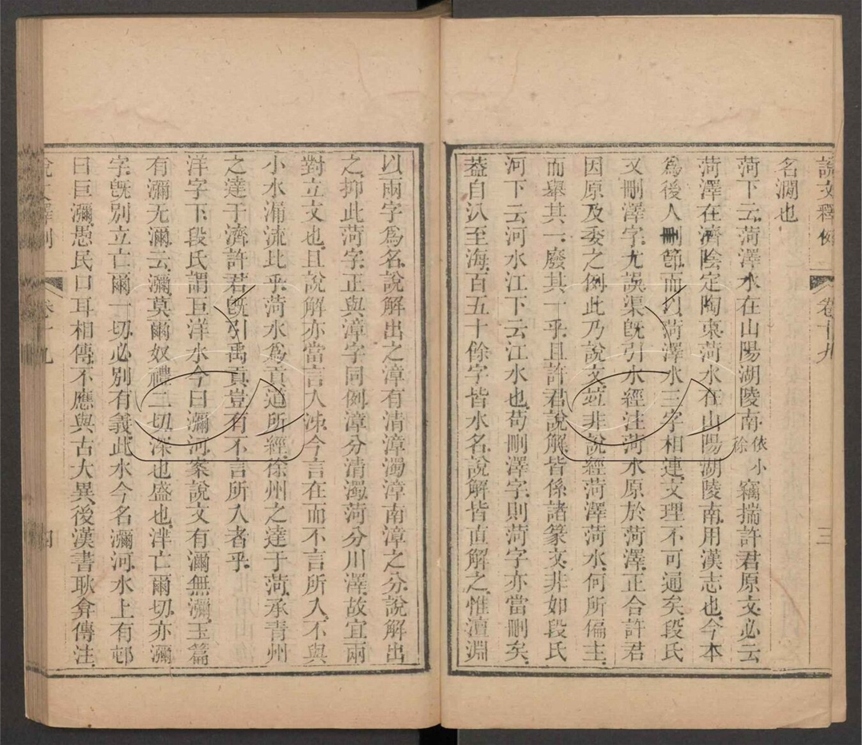 說文釋例 卷十九 三
名瀾也
菏下云菏澤水在山陽湖陵南依小徐竊揣許君原文必云
菏澤在濟陰定陶東菏水在山陽湖陵南用漢志也今本
爲後人刪節而以菏澤水三字相連文理不可通矣段氏
又刪澤字尤誤渠旣引水經注菏水原於菏澤正合許君
因原及委之例此乃說文竝非說經菏澤菏水何所偏主
而舉其一廢其一乎且許君說解皆係諸篆文非如段氏
河下云河水江下云江水也苟刪澤字則菏字亦當刪矣
葢自汃至海百五十餘字皆水名說解皆直解之惟澶淵
以兩字爲名說解出之漳有清漳濁漳南漳之分說解出
之抑此菏字正與漳字同例漳分清濁菏分川澤故宜兩
對立文也且說解亦當言入泲今言在而不言所入不與
小水湳流比乎菏水爲貢道所經徐州之達于菏承青州
之達于濟許君旣引禹貢豈有不言所入者乎
洋字下段氏謂巨洋水今曰瀰河案說文有濔無瀰玉篇
有瀰尤濔云瀰莫爾奴禮二切深也盛也洋亡爾切亦瀰
字旣別立亡爾一切必別有義此水今名瀰河水上有邨
曰巨瀰愚民口耳相傳不應與古大異後漢書耿弇傳注
說文釋例 卷十九 四